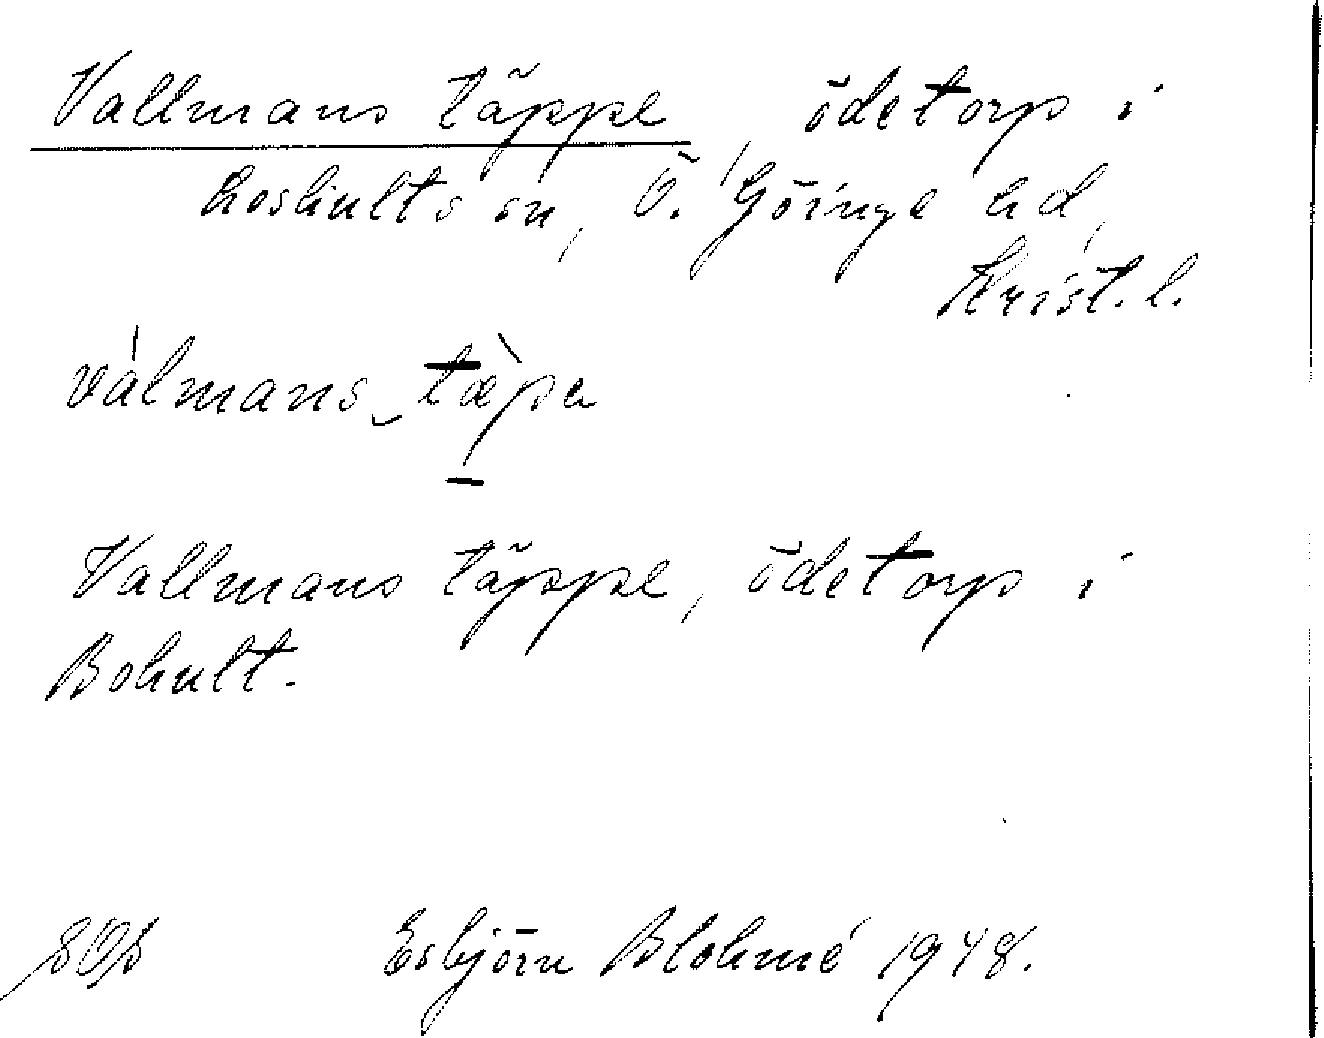 Vallmans täppe, ödetorp i
Loshults sn, Ö. Göinge hd,
Krist. l.
vàlmans tæ̀pa
Vallmans täppe, ödetorp i
Bohult.
Esbjörn Blohmé 1948.